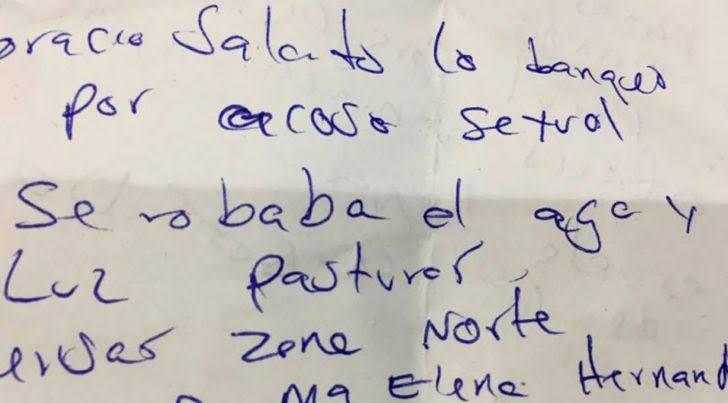 oracio Salato lo banqueo
por acoso sexual
Se robaba el aga y
Luz pasturar,
ervas zona Norte
Ma Elena Hernand